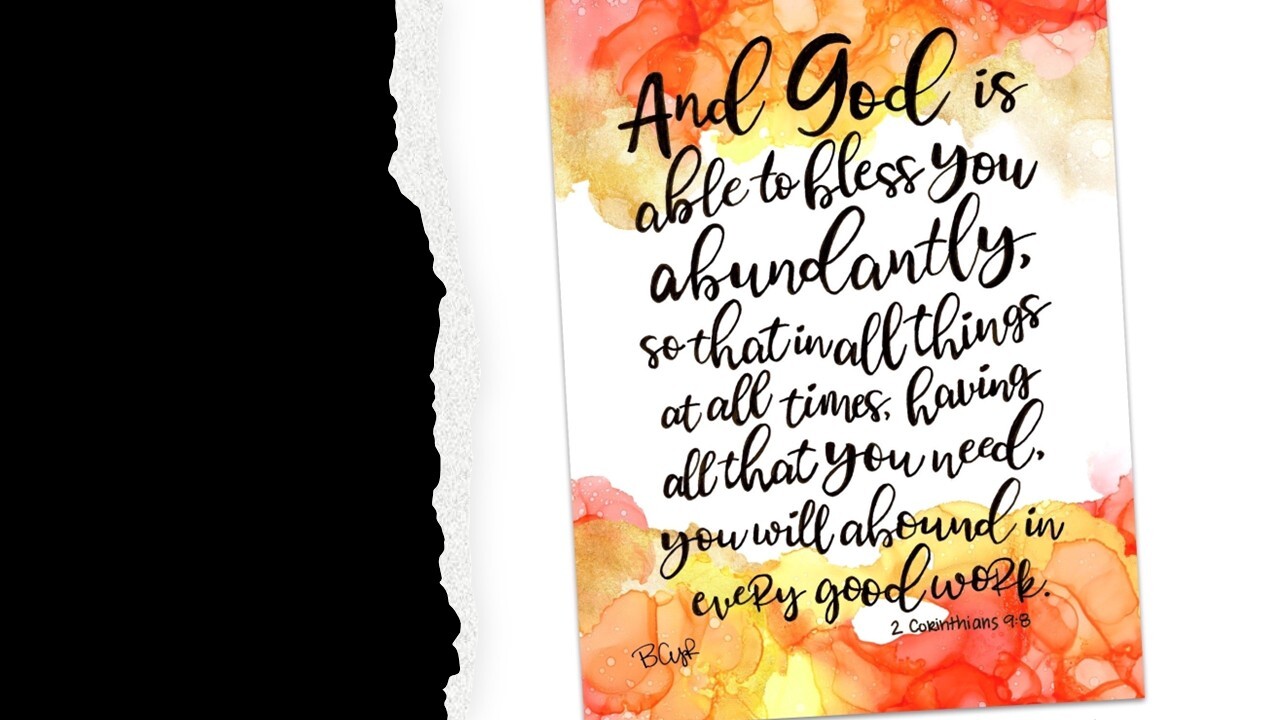 And God is
able to bless you
abundantly,
so that in all things
at all times, having
all that you need,
you will abound in
every good work.
2 Corinthians 9:8
BCyR